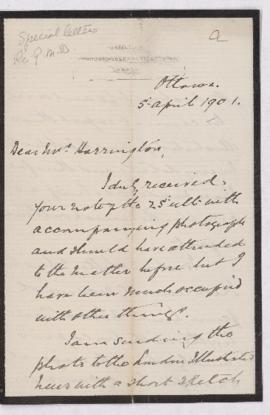 Special letters
Re G.M.D
a
Ottawa.
5 April 1901.
Dear Mrs. Harrington,
I duly received
your note of the 25 ult. with
accompanying photograph
and should have attended
to the matter before but I
have been much occupied
with other things.
I am sending the
photo to the London Illustrated
News with a short sketch